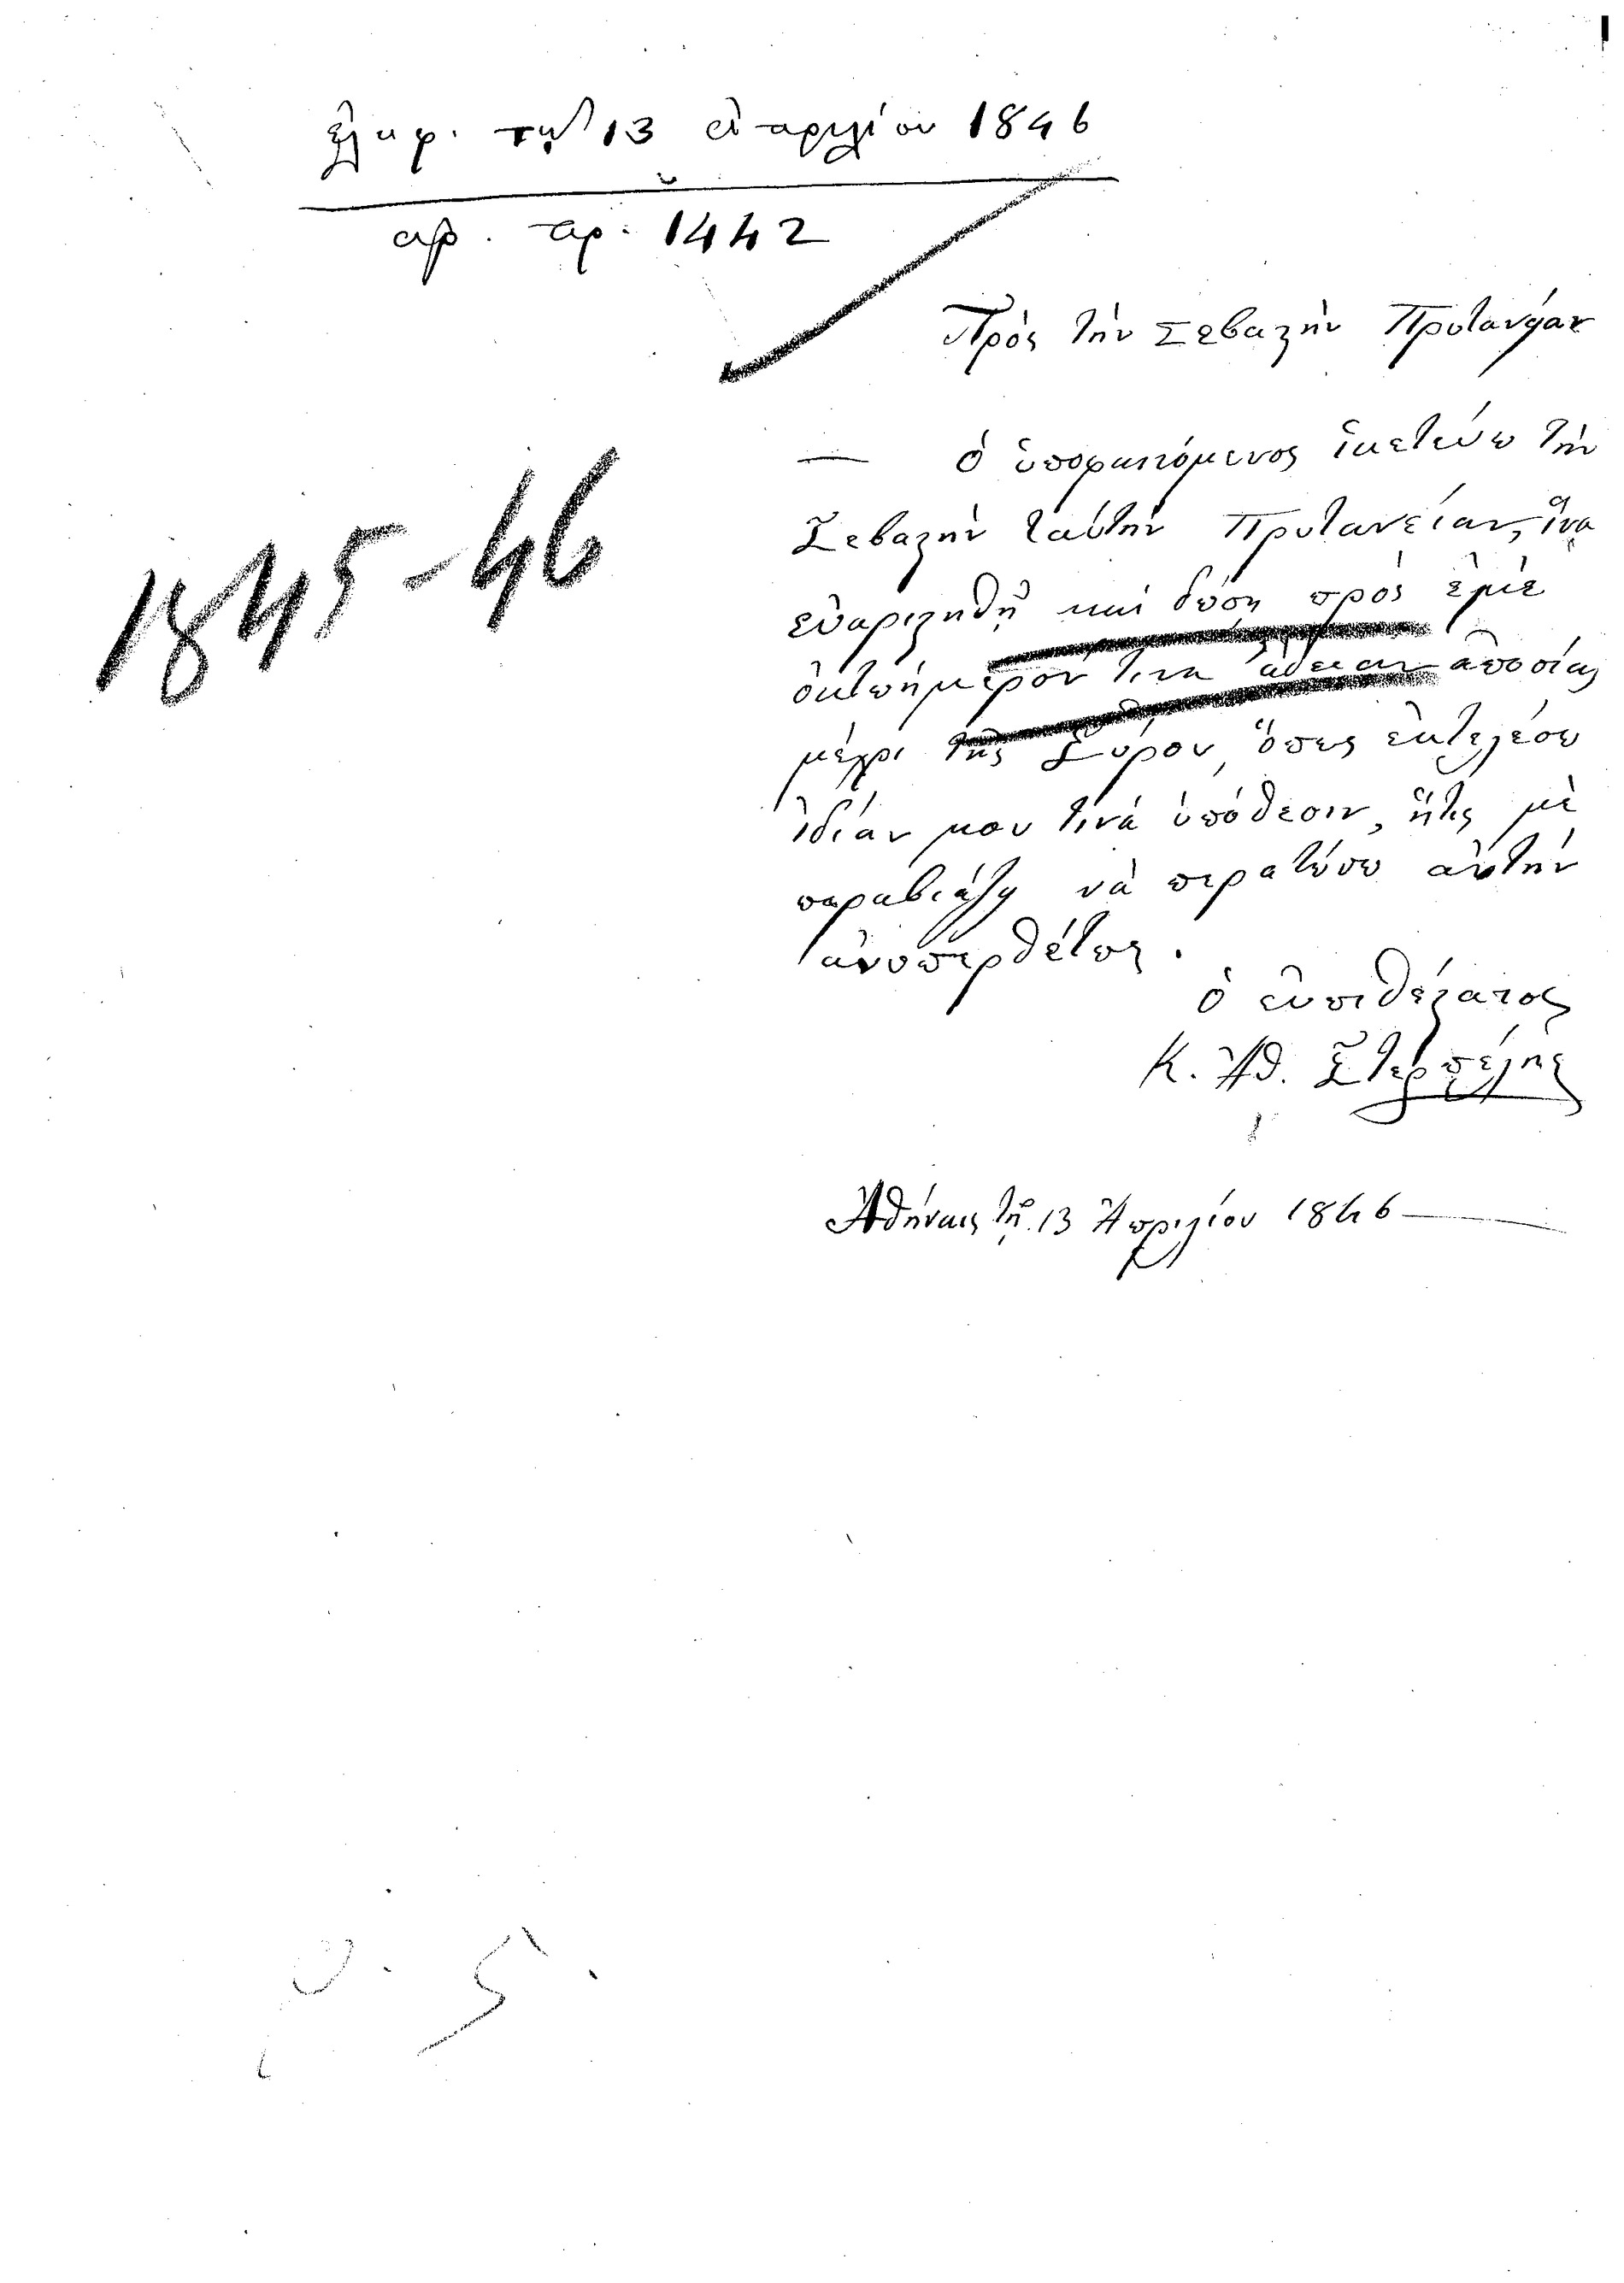 ἐλήφ. τῇ 13 ἀπριλίου 1846
αρ. πρ. 1442
1845-46
Πρὸς τὴν Σεβαστὴν Πρυτανείαν
— ὁ ὑποφαινόμενος ἱκετεύω τὴν
Σεβαστὴν ταύτην Πρυτανείαν, ἵνα
εὐαρεστηθῇ καὶ δώσῃ πρὸς ἐμὲ
ὀκτωήμερόν τινα ἄδειαν ἀπουσίας
μέχρι τῆς Σύρου, ὅπως ἐκτελέσω
ἰδίαν μου τινὰ ὑπόθεσιν, ἥτις μὲ
παραβιάζει νὰ περατώσω αὐτὴν
ἀνυπερθέτως.
ὁ εὐπειθέστατος
Κ. Ἀθ.
Ἀθήναις τῇ 13 Ἀπριλίου 1846